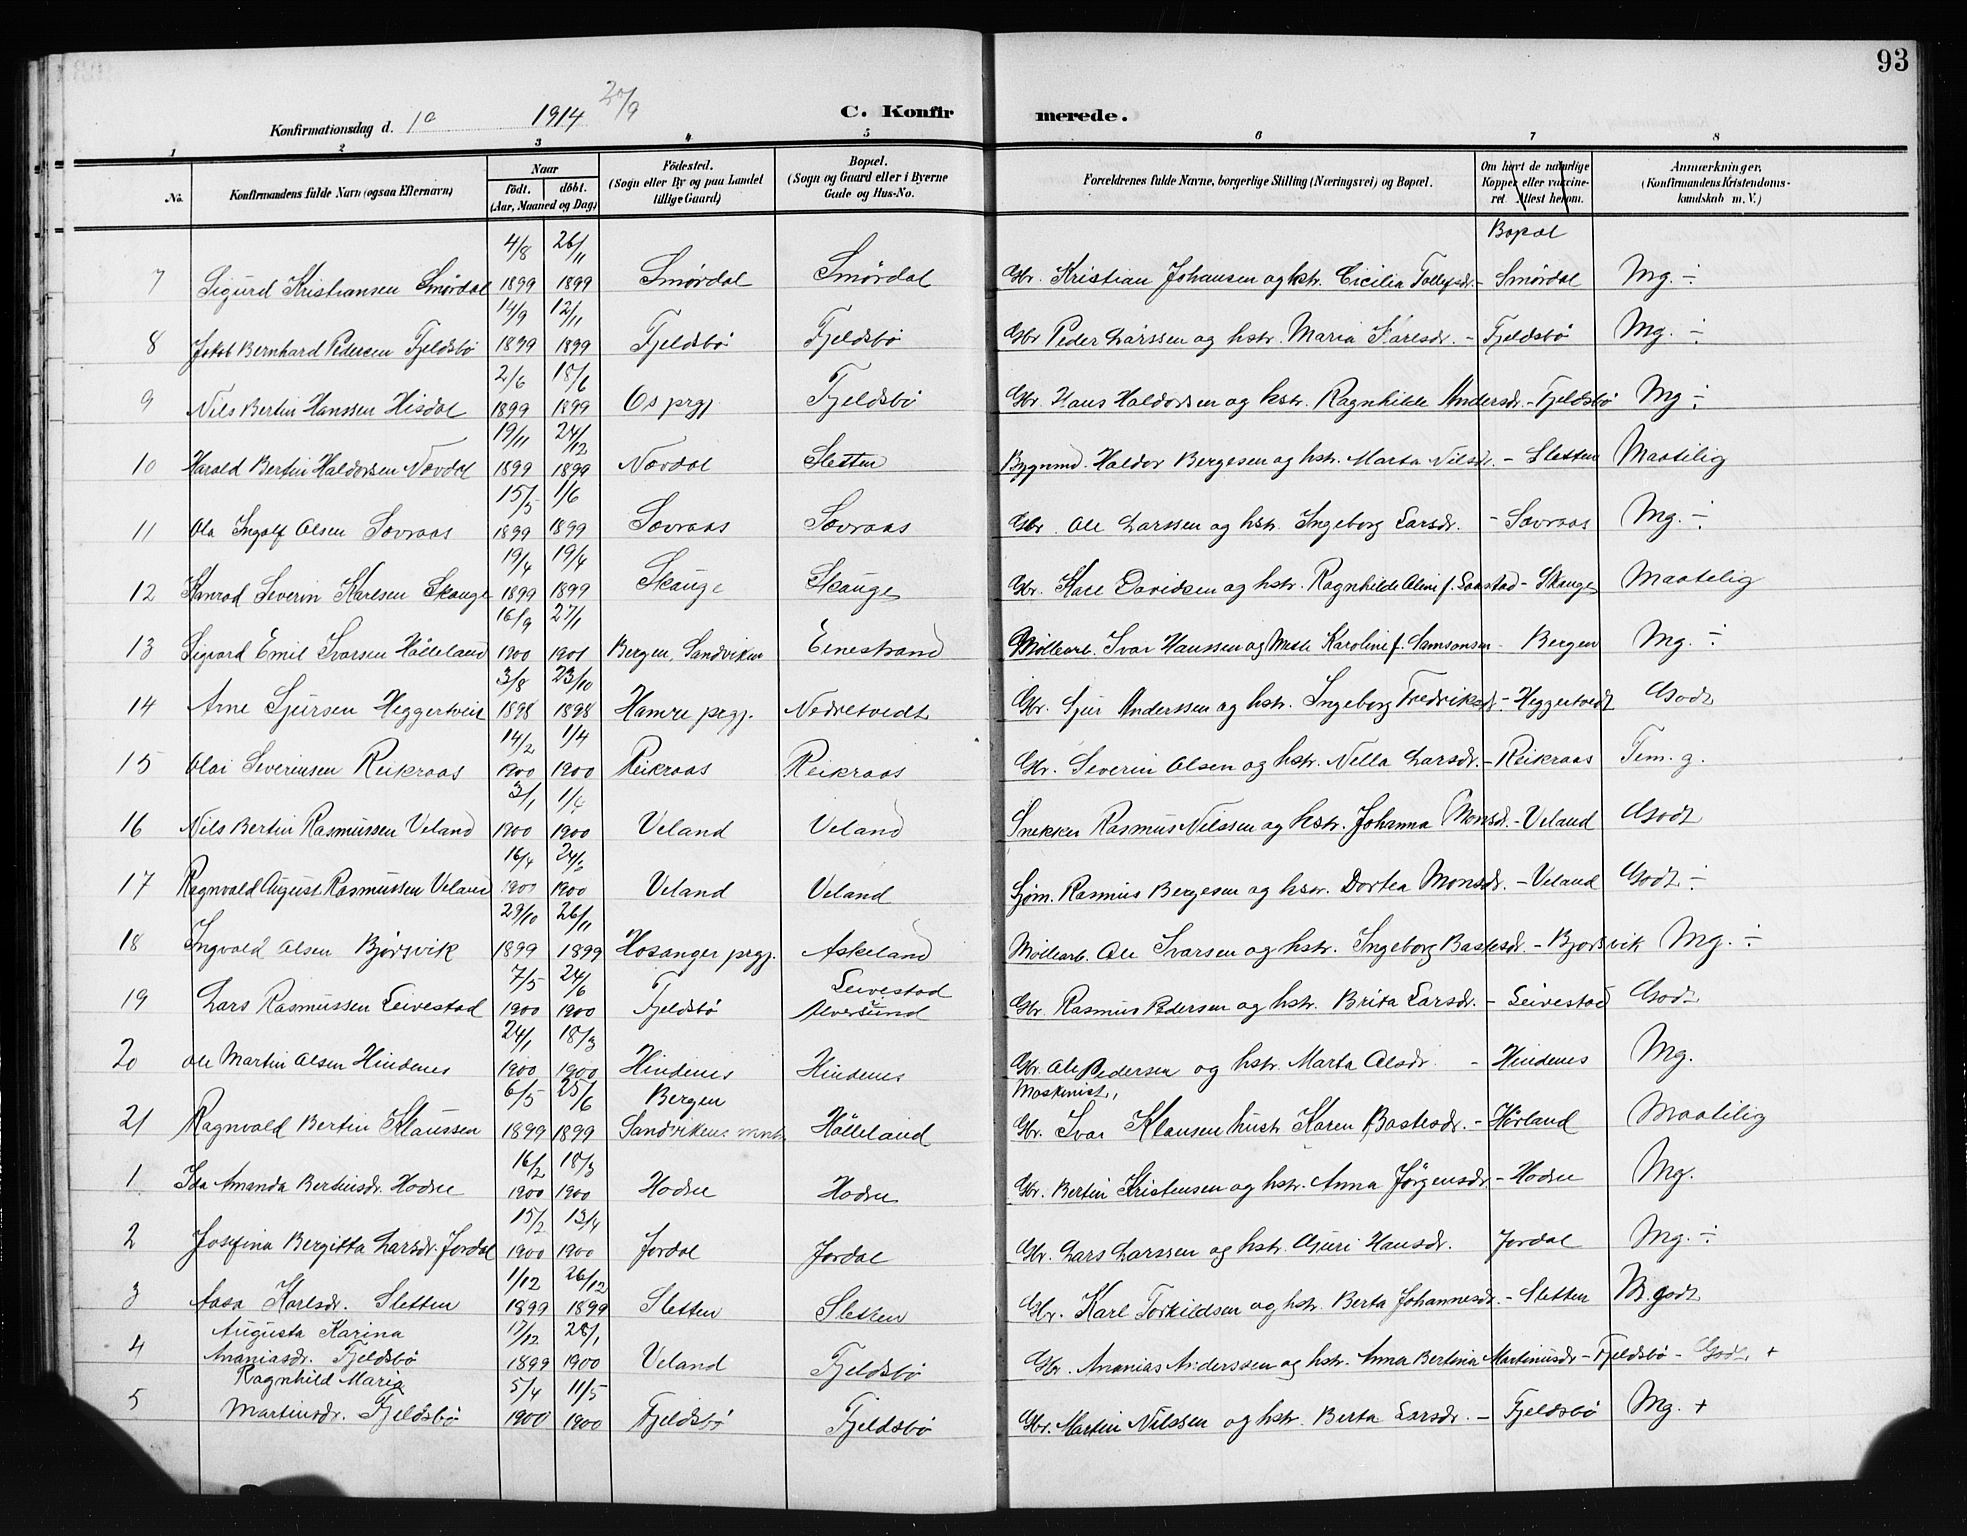 93
Konfirmationsdag d. 1914 20/9 C. Konfirmerede.
1 2 3 4 5 6 7 8
No. Konfirmandens fulde Navn (ogsaa Efternavn) Naar födt. döbt. (Aar, Maaned og Dag) Födested. (Sogn eller By og paa Landet tillige Gaard) Bopæl. (Sogn og Gaard eller i Byerne Gade og Hus-No. Forældrenes fulde Navne, borgerlige Stilling (Næringsvei) og Bopæl. Om havt de naturlige Kopper eller vaccineret. Attest herom. Anmærkninger. (Konfirmandens Kristendomskundskab m. V.)
Bopæl
7 Sigurd Kristiansen Smördal 4/8 1899 26/11 1899 Smördal Smördal Gbr. Kristian Johansen og hstr. Cicilia Tollefsdr. - Smördal Mg. ÷
8 Jakob Bernhard Pedersen Fjeldsbö 14/9 1899 12/11 1899 Fjeldsbö Fjeldsbö Gbr Peder Larssen og hstr. Maria - Fjeldsbö Mg. ÷
9 Nils Bertin Hanssen Hisdal 2/6 1899 18/6 1899 Os prgj. Fjeldsbö Gbr. Hans Haldorsen og hstr. Ragnhilde Andersdr. - Fjeldsbö Mg ÷
10 Harald Bertin Haldorsen Nævdal 19/11 1899 24/12 1899 Nævdal Sletten Bygnmd. Haldor Bergesen og hstr. Marta Nilsdr. - Sletten Maatelig
11 Ola Ingolf Olsen Sovraas 15/5 1899 1/6 1899 Sovraas Sovraas Gbr. Ole Larssen og hstr. Ingeborg Larsdr. - Sovraas Mg. ÷
12 Konrad Severin Karlsen Skauge 19/4 1899 19/4 1899 Skauge Skauge Gbr. Karl Davidsen og hstr. Ragnhilde Oline f. - Skauge Maatelig
13 Sigvard Emil Ivarsen Hölleland 16/9 1900 27/1 1901 Bergen, Sandviken Eenestrand Möllearb. Ivar Hanssen og Karoline f. Samsonsen - Bergen Mg. ÷
14 Arne Sjursen Heggertveit 3/8 1898 23/10 1898 Hamre prgj. Nedretvedt Gbr. Sjur Anderssen og hstr. Ingeborg Fredriksdr. - Heggertvedt Godt
15 Olai Severinsen Reikraas 14/2 1900 1/4 1900 Reikraas Reikraas Gbr. Severin Olsen og hstr. Nella Larsdr. - Reikraas Tem. g.
16 Nils Bertin Rasmussen Veland 3/1 1900 1/4 1900 Veland Veland Snekker Rasmus Nilssen og hstr. Johanna Monsdr. - Veland Godt
17 Ragnvald August Rasmussen Veland 16/4 1900 1900 Veland Veland Sjöm. Rasmus Bergesen og hstr. Dortea Monsdr. - Veland Godt ÷
18 Ingvald Olsen Bjørsvik 29/10 1899 26/11 1899 Hosanger prgj. Askeland Möllearb. Ole Ivarsen og hstr. Ingeborg Bastesdr. - Bjorsvik Mg. ÷
19 Lars Rasmussen Leivestad 7/5 1900 24/6 1900 Fjeldsbö Leivestad Alversund Gbr. Rasmus Pedersen og hstr. Brita Larsdr. - Leivestad Godt
20 Ole Martin Olsen Hindenes 24/1 1900 18/3 1900 Hindenes Hindenes Gbr. Ole Pedersen og hstr. Marta Olsdr. - Hindenes Mg.
21 Ragnvald Bertin Klaussen 6/5 1899 25/6 1899 Bergen Sandvikens mnh. Hölleland Maskinist, Gbr. Ivar Klausen hustr. Karen Bastesdr. - Hörland Maatelig
1 Ida Amanda Bertinsdr. Hodne 16/2 1900 18/3 1900 Hodne Hodne Gbr. Bertin Kristensen og hstr. Anna Jörgensdr. - Hodne Mg.
2 Josefina Bergitta Larsdr. Jordal 15/2 1900 13/4 1900 Jordal Jordal Gbr. Lars Larssen og hstr. Guri Hansdr. Jordal Mg. ÷
3 Aasa Karlsdr. Sletten 1/12 1899 26/12 1899 Sletten Sletten Gbr. Karl Torkildsen og hstr. Berta Johannesdr. - Sletten M. godt
4 Augusta Karina Ananiasdr. Fjeldsbö 17/12 1899 28/1 1900 Veland Fjeldsbö Gbr. Ananias Anderssen og hstr. Anna Bertina Martinusdr - Fjeldsbö - Godt +
5 Ragnhild Maria Martinsdr. Fjeldsbö 5/4 1900 11/5 1900 Fjeldsbö Fjeldsbö Gbr. Martin Nilssen og hstr. Berta Larsdr. - Fjeldsbö Mg. +